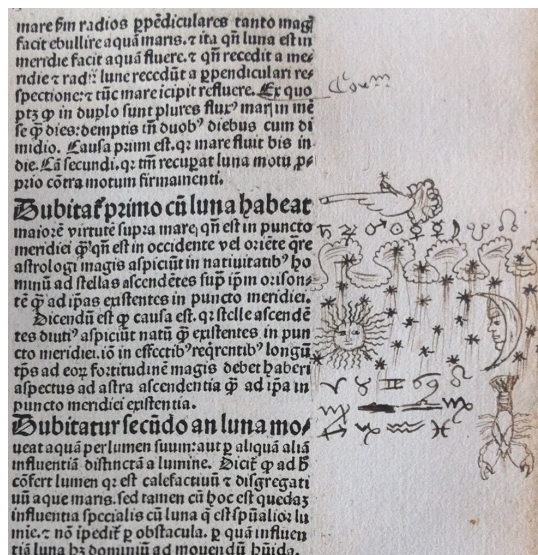 mare ẜm radios ꝑpẽdiculares tanto magꝭ
facit ebullire aquã maris. ⁊ ita qñ luna est in
meridie facit aquã fluere. ⁊ qñ recedit a me⸗
ridie ⁊ radij lune recedũt a ꝑpendiculari re⸗
spectione: ⁊ tũc mare icipit refluere. Ex quo
ptꝫ ꝙ in duplo sunt plures fluxꝰ maris in mẽ
se ꝙ̃ dies: demptis tñ duobꝰ diebus cum di
midio. Causa primi est. qꝛ mare fluit bis in
die. Cã secundi. qꝛ tm̃ recuꝑat luna motu ꝓ⸗
prio cõtra motum firmamenti.
Dubitat᷑ primo cũ luna habeat
maiorẽ virtutẽ supra mare, qñ est in puncto
meridiei ꝙ̃ qñ est in occidente vel oriẽte q̃re
astrologi magis aspiciũt in natiuitatibꝰ ho
minũ ad stellas ascendẽtes supͣ ipm orison⸗
tẽ ꝙ̃ ad ip̃as existentes in puncto meridiei.
Dicendũ est ꝙ causa est. qꝛ stelle ascendẽ
tes diutiꝰ aspiciunt natũ ꝙ̃ existentes in pun
cto meridiei. iõ in effectibꝰ reqͥrentibꝰ longũ
tp̃s ad eoꝝ fortitudinẽ magis debet haberi
aspectus ad astra ascendentia ꝙ̃ ad ip̃a in
puncto meridiei existentia.
Dubitatur secũdo an luna mo⸗
ueat aquã per lumen suum: aut ꝑ aliquã aliã
influentiã distinctã a lumine. Dicit᷑ ꝙ ad hͦ
cõfert lumen qꝛ est calefactiuũ ⁊ disgregati
uũ aque maris. sed tamen cũ hoc est quedaꝫ
influentia specialis cũ luna q̃ est spũalior lu
mie. ⁊ nõ ipedit᷑ ꝑ obstacula. ꝑ quã influen
tiã luna hꝫ dominiũ ad mouendũ hũida.
♄ ♃ ♂ ☉ ♀ ☿ ☽ ☋ ☊
♈ ♉ ♊ ♋ ♌
♍ ♏
♐ ♑ ♒ ♓